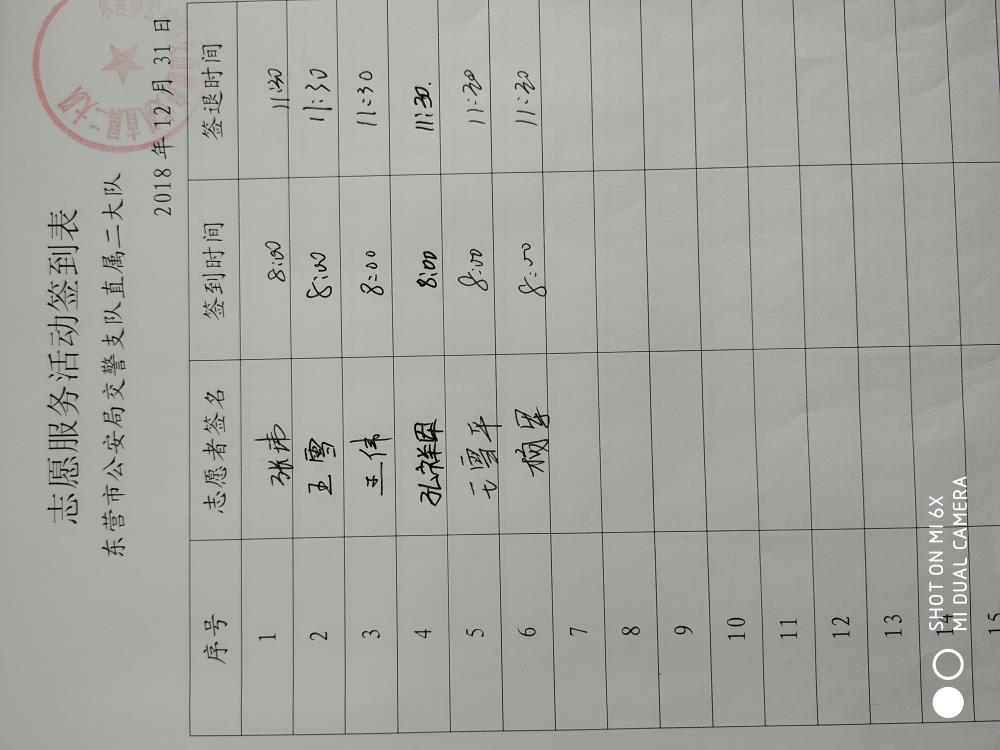 志愿服务活动签到表
东营市公安局交警支队直属二大队
2018 年 12 月 31 日
序号 志愿者签名 签到时间 签退时间
1 张玮 8:00 11:30
2 王雪 8:00 11:30
3 王伟 8:00 11:30
4 8:00 11:30.
5 8:00 11:30
6 8:00 11:30
7
8
9
10
11
12
13
14
15
直属二大队
SHOT ON MI 6X
MI DUAL CAMERA